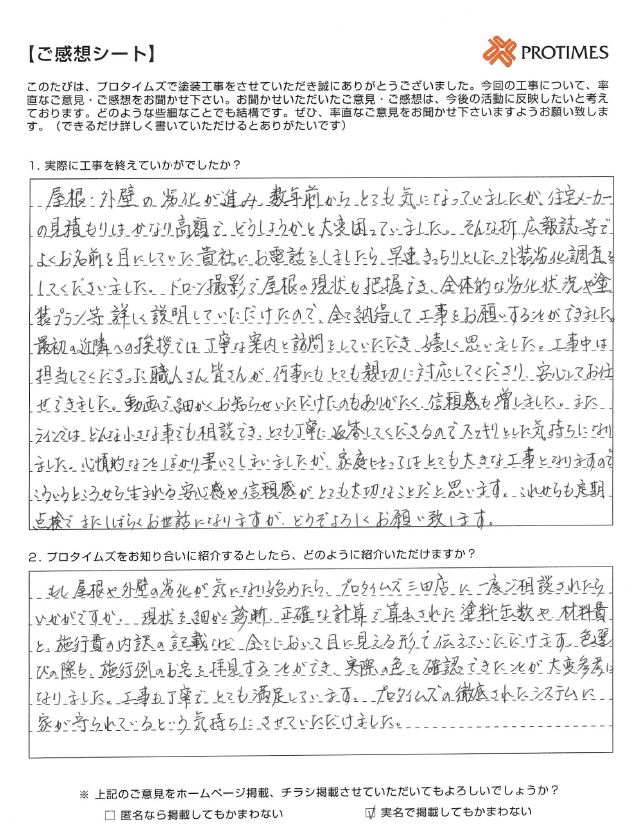 【ご感想シート】
PROTIMES
このたびは、プロタイムズで塗装工事をさせていただき誠にありがとうございました。今回の工事について、率
直なご意見・ご感想をお聞かせ下さい。お聞かせいただいたご意見・ご感想は、今後の活動に反映したいと考え
ております。どのような些細なことでも結構です。ぜひ、率直なご意見をお聞かせ下さいますようお願い致しま
す。（できるだけ詳しく書いていただけるとありがたいです）
1. 実際に工事を終えていかがでしたか？
屋根・外壁の劣化が進み、数年前からとても気になっていましたが、住宅メーカー
の見積もりはかなり高額で、どうしようかと大変困っていました。そんな折、広報誌等で
よくお名前を目にしていた貴社にお電話をしましたら、早速きっちりとした外装劣化調査を
してくださいました。ドローン撮影で屋根の現状も把握でき、全体的な劣化状況や塗
装プラン等詳しく説明していただけたので、全て納得して工事をお願いすることができました。
最初の近隣への挨拶では丁寧な案内と訪問をしていただき、嬉しく思いました。工事中は
担当してくださった職人さん皆さんが、何事にもとても親切に対応してくださり、安心してお任
せできました。動画で細かくお知らせいただけたのもありがたく、信頼感も増しました。また
ラインではどんな小さな事でも相談でき、とても丁寧に返答してくださるのでスッキリとした気持ちになり
ました。心情的なことばかり書いてしまいましたが、家庭にとってはとても大きな工事となりますので
こういうところから生まれる安心感や信頼感がとても大切なことだと思います。これからも定期
点検でまたしばらくお世話になりますが、どうぞよろしくお願い致します。
2. プロタイムズをお知り合いに紹介するとしたら、どのように紹介いただけますか？
もし屋根や外壁の劣化が気になり始めたら、プロタイムズ三田店に一度ご相談されたら
いかがですか。現状を細かく診断、正確な計算で算出された塗料缶数や、材料費
と、施行費の内訳の記載など、全てにおいて目に見える形で伝えていただけます。色選
びの際も、施行例のお宅を拝見することができ、実際の色を確認できたことが大変参考に
なりました。工事も丁寧でとても満足しています。プロタイムズの徹底されたシステムに
家が守られているという気持ちにさせていただけました。
※ 上記のご意見をホームページ掲載、チラシ掲載させていただいてもよろしいでしょうか？
□ 匿名なら掲載してもかまわない ☑ 実名で掲載してもかまわない